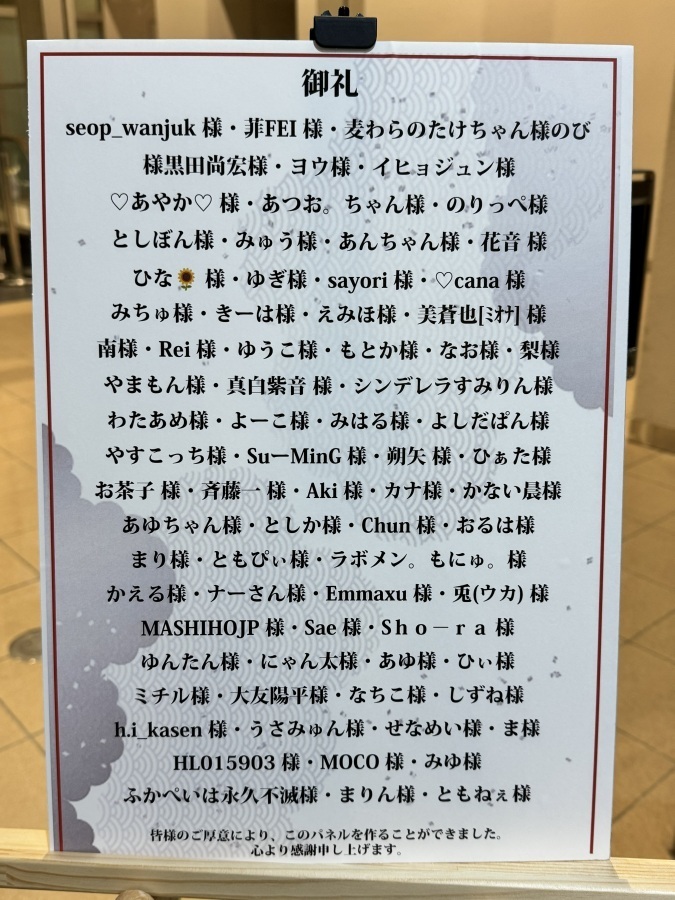 御礼
seop_wanjuk 様・菲FEI 様・麦わらのたけちゃん様のび
様黒田尚宏様・ヨウ様・イヒョジュン様
♡あやか♡ 様・あつお。ちゃん様・のりっぺ様
としぼん様・みゅう様・あんちゃん様・花音 様
ひな🌻 様・ゆぎ様・sayori 様・♡cana 様
みちゅ様・きーは様・えみほ様・美蒼也[ﾐｵﾅ] 様
南様・Rei 様・ゆうこ様・もとか様・なお様・梨様
やまもん様・真白紫音 様・シンデレラすみりん様
わたあめ様・よーこ様・みはる様・よしだぱん様
やすこっち様・SuーMinG 様・朔矢 様・ひぁた様
お茶子 様・斉藤一 様・Aki 様・カナ様・かない晨様
あゆちゃん様・としか様・Chun 様・おるは様
まり様・ともぴぃ様・ラボメン。もにゅ。様
かえる様・ナーさん様・Emmaxu 様・兎(ウカ) 様
MASHIHOJP 様・Sae 様・Ｓｈｏ－ｒａ 様
ゆんたん様・にゃん太様・あゆ様・ひぃ様
ミチル様・大友陽平様・なちこ様・しずね様
h.i_kasen 様・うさみゅん様・せなめい様・ま様
HL015903 様・MOCO 様・みゆ様
ふかぺいは永久不滅様・まりん様・ともねぇ様
皆様のご厚意により、このパネルを作ることができました。
心より感謝申し上げます。